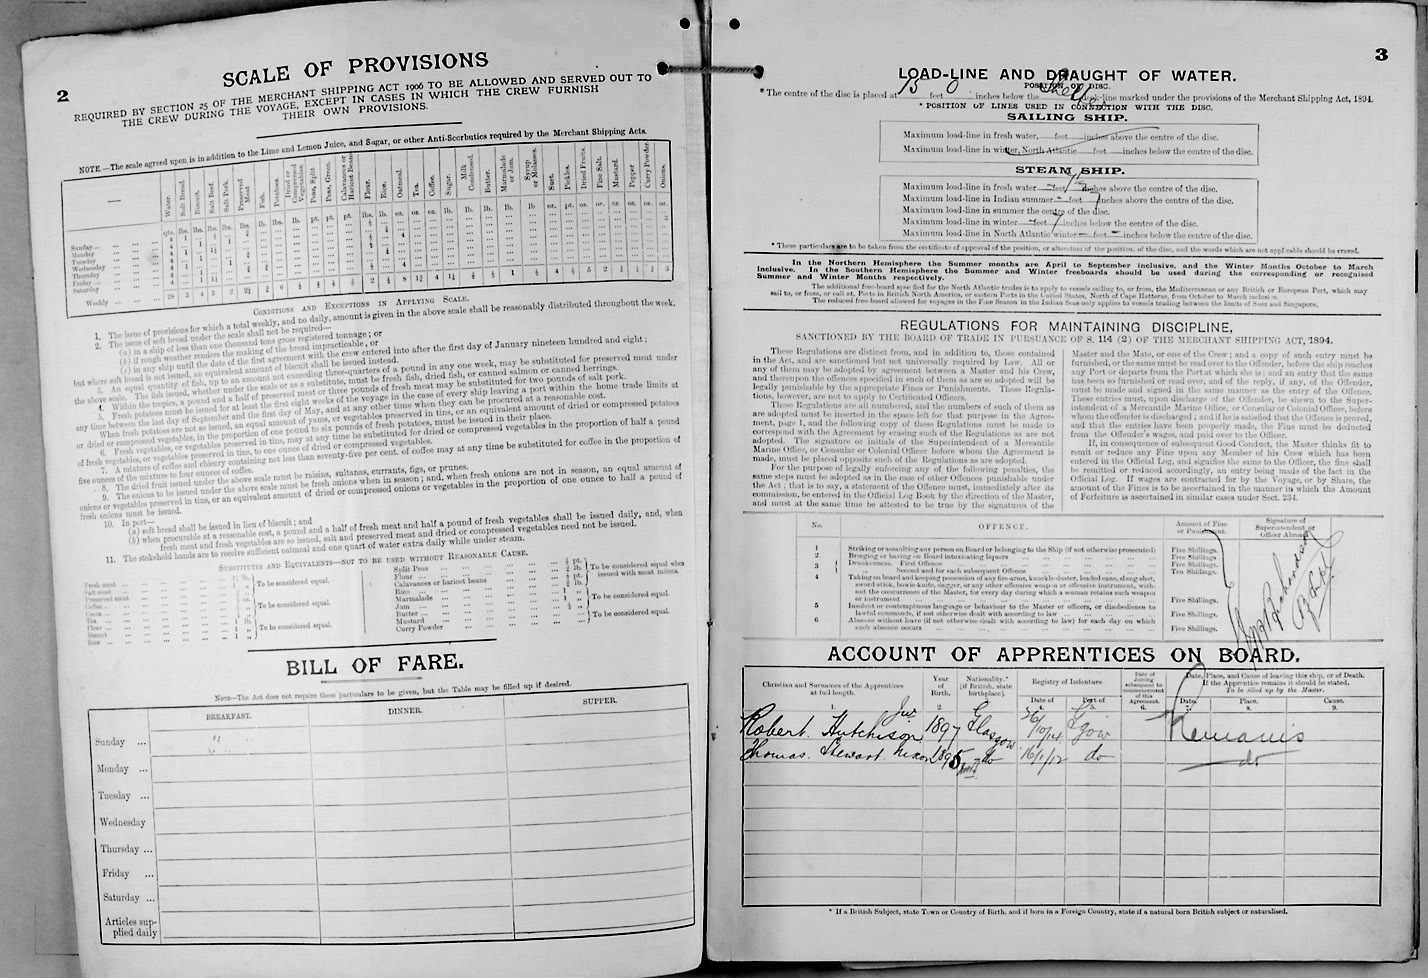 2
SCALE OF PROVISIONS
REQUIRED BY SECTION 25 OF THE MERCHANT SHIPPING ACT 1906 TO BE ALLOWED AND SERVED OUT TO
THE CREW DURING THE VOYAGE, EXCEPT IN CASES IN WHICH THE CREW FURNISH
THEIR OWN PROVISIONS.
NOTE.—The scale agreed upon is in addition to the Lime and Lemon Juice, and Sugar, or other Anti-Scorbutics required by the Merchant Shipping Acts.
Water. Soft Bread. Biscuit. Salt Beef. Salt Pork. Preserved Meat Fish. Potatoes. Dried or Compressed Vegetables. Peas, Split. Peas, Green. Calavances or Haricot Beans Flour. Rice. Oatmeal. Tea. Coffee. Sugar. Milk Condensed. Butter. Marmalade or Jam. Syrup or Molasses. Suet. Pickles. Dried Fruits. Fine Salt. Mustard. Pepper Curry Powder. Onions.
Sunday
Monday
Tuesday
Wednesday
Thursday
Friday
Saturday
Weekly
CONDITIONS AND EXCEPTIONS IN APPLYING SCALE.
1. The issue of provisions for which a total weekly, and no daily, amount is given in the above scale shall be reasonably distributed throughout the week.
2. The issue of soft bread under the scale shall not be required—
(a) in a ship of less than one thousand tons gross registered tonnage; or
(b) if rough weather renders the making of the bread impracticable, or
(c) in any ship until the date of the first agreement with the crew entered into after the first day of January nineteen hundred and eight;
but where soft bread is not issued, an equivalent amount of biscuit shall be issued instead.
3. An equal quantity of fish, up to an amount not exceeding three-quarters of a pound in any one week, may be substituted for preserved meat under
the above scale. The fish issued, whether under the scale or as a substitute, must be fresh fish, dried fish, or canned salmon or canned herrings.
4. Within the tropics, a pound and a half of preserved meat or three pounds of fresh meat may be substituted for two pounds of salt pork.
5. Fresh potatoes must be issued for at least the first eight weeks of the voyage in the case of every ship leaving a port within the home trade limits at
any time between the last day of September and the first day of May, and at any other time when they can be procured at a reasonable cost.
When fresh potatoes are not so issued, an equal amount of yams, or vegetables preserved in tins, or an equivalent amount of dried or compressed potatoes
or dried or compressed vegetables, in the proportion of one pound to six pounds of fresh potatoes, must be issued in their place.
6. Fresh vegetables, or vegetables preserved in tins, may at any time be substituted for dried or compressed vegetables in the proportion of half a pound
of fresh vegetables, or vegetables preserved in tins, to one ounce of dried or compressed vegetables.
7. A mixture of coffee and chicory containing not less than seventy-five per cent. of coffee may at any time be substituted for coffee in the proportion of
five ounces of the mixture to four ounces of coffee.
8. The dried fruit issued under the above scale must be raisins, sultanas, currants, figs, or prunes.
9. The onions to be issued under the above scale must be fresh onions when in season; and, when fresh onions are not in season, an equal amount of
onions or vegetables preserved in tins, or an equivalent amount of dried or compressed onions or vegetables in the proportion of one ounce to half a pound of
fresh onions must be issued.
10. In port—
(a) soft bread shall be issued in lieu of biscuit; and
(b) when procurable at a reasonable cost, a pound and a half of fresh meat and half a pound of fresh vegetables shall be issued daily, and, when
fresh meat and fresh vegetables are so issued, salt and preserved meat and dried or compressed vegetables need not be issued.
11. The stokehold hands are to receive sufficient oatmeal and one quart of water extra daily while under steam.
SUBSTITUTES AND EQUIVALENTS—NOT TO BE USED WITHOUT REASONABLE CAUSE.
Fresh meat
Salt meat
Preserved meat
To be considered equal.
Coffee
Cocoa
Tea
To be considered equal.
Flour
Biscuit
Rice
To be considered equal.
Split Peas
Flour
Calavances or haricot beans
Rice
To be considered equal when
issued with meat rations.
Marmalade
Jam
Butter
To be considered equal.
Mustard
Curry Powder
To be considered equal.
BILL OF FARE.
NOTE—The Act does not require these particulars to be given, but the Table may be filled up if desired.
BREAKFAST. DINNER. SUPPER.
Sunday ...
Monday ...
Tuesday ...
Wednesday
Thursday ...
Friday ...
Saturday ...
Articles sup-
plied daily
3
LOAD-LINE AND DRAUGHT OF WATER.
POSITION OF DISC.
* The centre of the disc is placed at 15 feet 0 inches below the deck-line marked under the provisions of the Merchant Shipping Act, 1894.
* POSITION OF LINES USED IN CONNECTION WITH THE DISC.
SAILING SHIP.
Maximum load-line in fresh water, feet inches above the centre of the disc.
Maximum load-line in winter, North Atlantic feet inches below the centre of the disc.
STEAM SHIP.
Maximum load-line in fresh water feet inches above the centre of the disc.
Maximum load-line in Indian summer feet inches above the centre of the disc.
Maximum load-line in summer the centre of the disc.
Maximum load-line in winter feet inches below the centre of the disc.
Maximum load-line in North Atlantic winter feet inches below the centre of the disc.
* These particulars are to be taken from the certificate of approval of the position, or alteration of the position, of the disc, and the words which are not applicable should be erased.
In the Northern Hemisphere the Summer months are April to September inclusive, and the Winter Months October to March
inclusive. In the Southern Hemisphere the Summer and Winter freeboards should be used during the corresponding or recognised
Summer and Winter Months respectively.
The additional freeboard specified for the North Atlantic trades is to apply to vessels sailing to, or from, the Mediterranean or any British or European Port, which may
sail to, or from, or call at, Ports in British North America, or eastern Ports in the United States, North of Cape Hatteras, from October to March inclusive.
The reduced freeboard allowed for voyages in the Fine Season in the Indian Seas only applies to vessels trading between the limits of Suez and Singapore.
REGULATIONS FOR MAINTAINING DISCIPLINE,
SANCTIONED BY THE BOARD OF TRADE IN PURSUANCE OF S. 114 (2) OF THE MERCHANT SHIPPING ACT, 1894.
These Regulations are distinct from, and in addition to, those contained
in the Act, and are sanctioned but not universally required by Law. All or
any of them may be adopted by agreement between a Master and his Crew,
and thereupon the offences specified in such of them as are so adopted will be
legally punishable by the appropriate Fines or Punishments. These Regula-
tions, however, are not to apply to Certificated Officers.
These Regulations are all numbered, and the numbers of such of them as
are adopted must be inserted in the space left for that purpose in the Agree-
ment, page 1, and the following copy of these Regulations must be made to
correspond with the Agreement by erasing such of the Regulations as are not
adopted. The signature or initials of the Superintendent of a Mercantile
Marine Office, or Consular or Colonial Officer before whom the Agreement is
made, must be placed opposite such of the Regulations as are adopted.
For the purpose of legally enforcing any of the following penalties, the
same steps must be adopted as in the case of other Offences punishable under
the Act; that is to say, a statement of the Offence must, immediately after its
commission, be entered in the Official Log Book by the direction of the Master,
and must at the same time be attested to be true by the signatures of the
Master and the Mate, or one of the Crew; and a copy of such entry must be
furnished, or the same must be read over to the Offender, before the ship reaches
any Port or departs from the Port at which she is; and an entry that the same
has been so furnished or read over, and of the reply, if any, of the Offender,
must be made and signed in the same manner as the entry of the Offence.
These entries must, upon discharge of the Offender, be shewn to the Super-
intendent of a Mercantile Marine Office, or Consular or Colonial Officer, before
whom the offender is discharged; and if he is satisfied that the Offence is proved,
and that the entries have been properly made, the Fine must be deducted
from the Offender's wages, and paid over to the Officer.
If, in consequence of subsequent Good Conduct, the Master thinks fit to
remit or reduce any Fine upon any Member of his Crew which has been
entered in the Official Log, and signifies the same to the Officer, the fine shall
be remitted or reduced accordingly, an entry being made of the fact in the
Official Log. If wages are contracted for by the Voyage, or by Share, the
Amount of the Fines is to be ascertained in the manner in which the Amount
of Forfeiture is ascertained in similar cases under Sect. 234.
No. OFFENCE. Amount of Fine or Punishment. Signature of Superintendent or Officer Abroad.
1 Striking or assaulting any person on Board or belonging to the Ship (if not otherwise prosecuted) Five Shillings.
2 Bringing or having on Board intoxicating liquors Five Shillings.
3 Drunkenness. First Offence Five Shillings.
Second and for each subsequent Offence Ten Shillings.
4 Taking on board and keeping possession of any fire-arms, knuckle-duster, loaded cane, slung-shot,
sword-stick, bowie-knife, dagger, or any other offensive weapon or offensive instrument, with-
out the concurrence of the Master, for every day during which a seaman retains such weapon
or instrument Five Shillings.
5 Insolent or contemptuous language or behaviour to the Master or officers, or disobedience to
lawful commands, if not otherwise dealt with according to law Five Shillings.
6 Absence without leave (if not otherwise dealt with according to law) for each day on which
such absence occurs Five Shillings.
ACCOUNT OF APPRENTICES ON BOARD.
Christian and Surnames of the Apprentices at full length. Year of Birth. Nationality.* [if British, state birthplace]. Registry of Indenture Date of Joining subsequent to commencement of this Agreement. Date, Place, and Cause of leaving this ship, or of Death. If the Apprentice remains it should be stated. To be filled up by the Master.
Date of Port of Date. Place. Cause.
1. 2. 3. 4. 5. 6. 7. 8. 9.
Robert Hutchison Jnr 1897 Glasgow 26/10/14 Glgow Remains
Thomas Stewart Nixon 1895 do 16/1/12 do do
* If a British Subject, state Town or Country of Birth, and if born in a Foreign Country, state if a natural born British subject or naturalised.